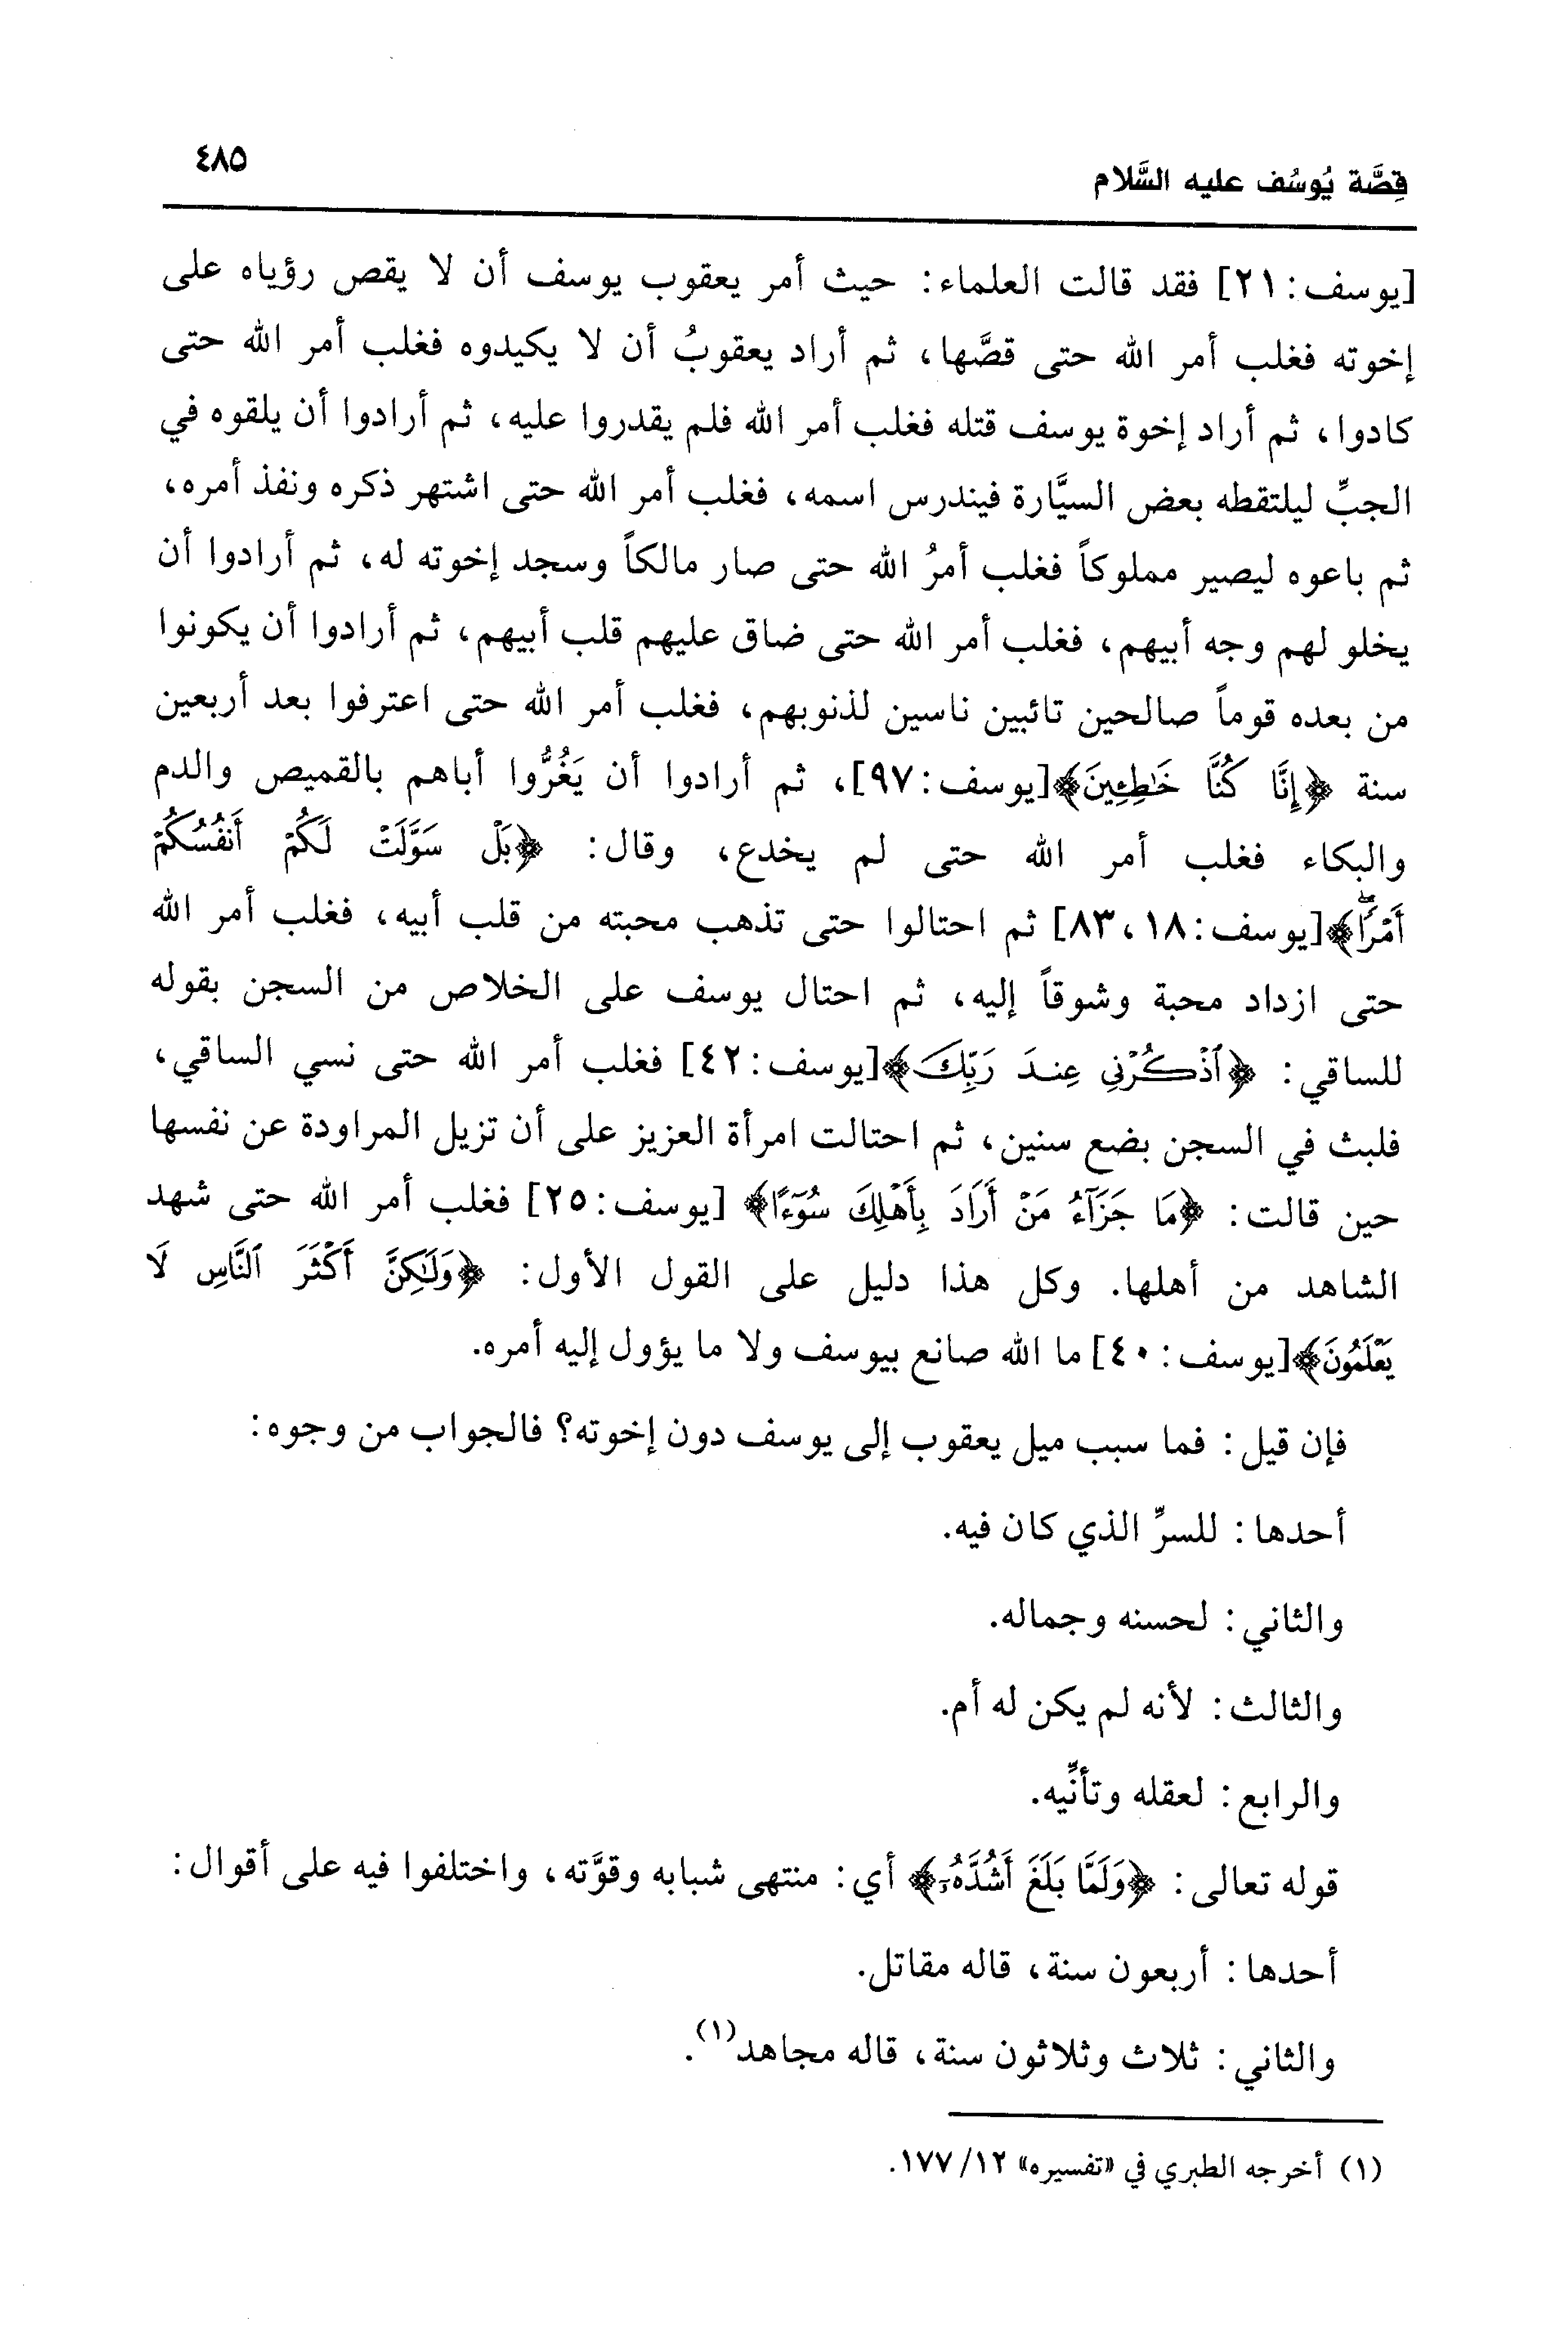 قِصَّة يُوسُف عليه السَّلام
٤٨٥
[يوسف: ٢١] فقد قالت العلماء: حيث أمر يعقوب يوسف أن لا يقص رؤياه على
إخوته فغلب أمر الله حتى قصَّها، ثم أراد يعقوبُ أن لا يكيدوه فغلب أمر الله حتى
كادوا، ثم أراد إخوة يوسف قتله فغلب أمر الله فلم يقدروا عليه، ثم أرادوا أن يلقوه في
الجبِّ ليلتقطه بعض السيَّارة فيندرس اسمه، فغلب أمر الله حتى اشتهر ذكره ونفذ أمره،
ثم باعوه ليصير مملوكاً فغلب أمرُ الله حتى صار مالكاً وسجد إخوته له، ثم أرادوا أن
يخلو لهم وجه أبيهم، فغلب أمر الله حتى ضاق عليهم قلب أبيهم، ثم أرادوا أن يكونوا
من بعده قوماً صالحين تائبين ناسين لذنوبهم، فغلب أمر الله حتى اعترفوا بعد أربعين
سنة ﴿إِنَّا كُنَّا خَٰطِـِٔينَ﴾[يوسف: ٩٧]، ثم أرادوا أن يَغُرُّوا أباهم بالقميص والدم
والبكاء فغلب أمر الله حتى لم يخدع، وقال: ﴿بَلْ سَوَّلَتْ لَكُمْ أَنفُسُكُمْ
أَمْرًاۖ﴾[يوسف: ١٨، ٨٣] ثم احتالوا حتى تذهب محبته من قلب أبيه، فغلب أمر الله
حتى ازداد محبة وشوقاً إليه، ثم احتال يوسف على الخلاص من السجن بقوله
للساقي: ﴿ٱذْكُرْنِي عِندَ رَبِّكَ﴾[يوسف: ٤٢] فغلب أمر الله حتى نسي الساقي،
فلبث في السجن بضع سنين، ثم احتالت امرأة العزيز على أن تزيل المراودة عن نفسها
حين قالت: ﴿مَا جَزَآءُ مَنْ أَرَادَ بِأَهْلِكَ سُوٓءًا﴾ [يوسف: ٢٥] فغلب أمر الله حتى شهد
الشاهد من أهلها. وكل هذا دليل على القول الأول: ﴿وَلَٰكِنَّ أَكْثَرَ ٱلنَّاسِ لَا
يَعْلَمُونَ﴾[يوسف: ٤٠] ما الله صانع بيوسف ولا ما يؤول إليه أمره.
فإن قيل: فما سبب ميل يعقوب إلى يوسف دون إخوته؟ فالجواب من وجوه:
أحدها: للسرِّ الذي كان فيه.
والثاني: لحسنه وجماله.
والثالث: لأنه لم يكن له أم.
والرابع: لعقله وتأنِّيه.
قوله تعالى: ﴿وَلَمَّا بَلَغَ أَشُدَّهُۥٓ﴾ أي: منتهى شبابه وقوَّته، واختلفوا فيه على أقوال:
أحدها: أربعون سنة، قاله مقاتل.
والثاني: ثلاث وثلاثون سنة، قاله مجاهد(١).
(١) أخرجه الطبري في «تفسيره» ١٢/ ١٧٧.